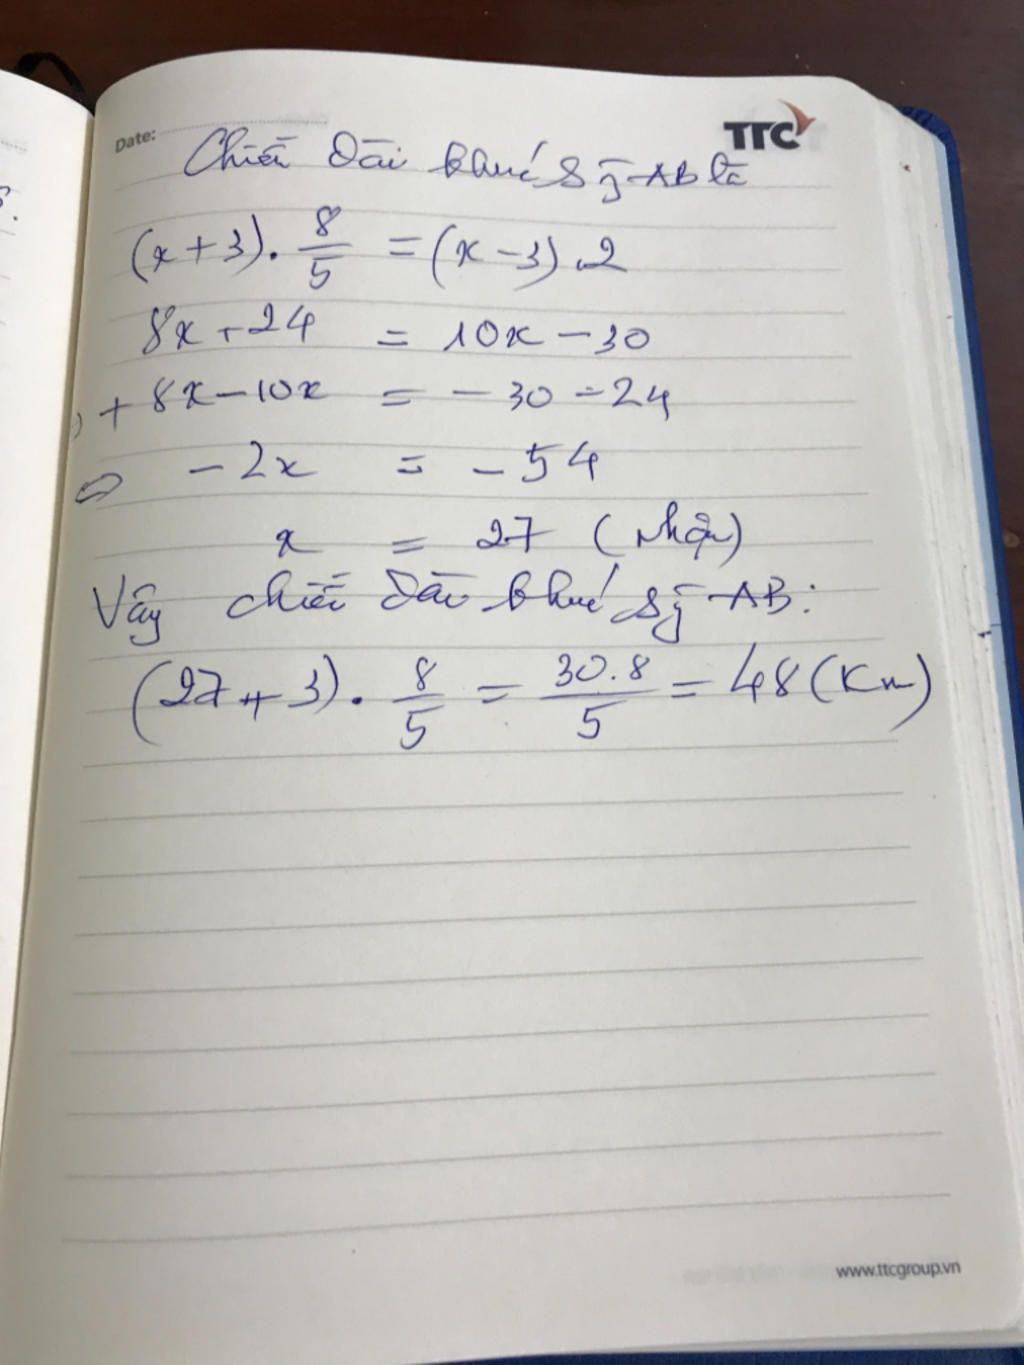 Date:
TTC
Chiều dài khúc sg AB là
(x + 3) . 8/5 = (x - 3) . 2
8x + 24 = 10x - 30
+ 8x - 10x = - 30 - 24
⇔ - 2x = - 54
x = 27 (nhận)
Vậy chiều dài khúc sg AB:
(27 + 3) . 8/5 = 30.8/5 = 48 (Km)
www.ttcgroup.vn